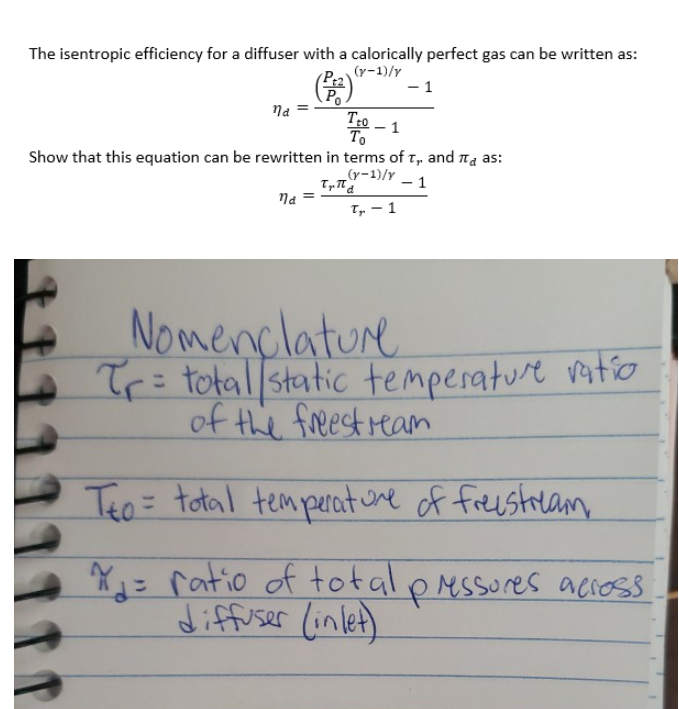 The isentropic efficiency for a diffuser with a calorically perfect gas can be written as:
η_d = ((P_t2/P_0)^((γ−1)/γ) − 1) / (T_t0/T_0 − 1)
Show that this equation can be rewritten in terms of τ_r and π_d as:
η_d = (τ_r π_d^((γ−1)/γ) − 1) / (τ_r − 1)
Nomenclature
τ_r = total/static temperature ratio
of the freestream
T_t0 = total temperature of freestream
π_d = ratio of total pressures across
diffuser (inlet)